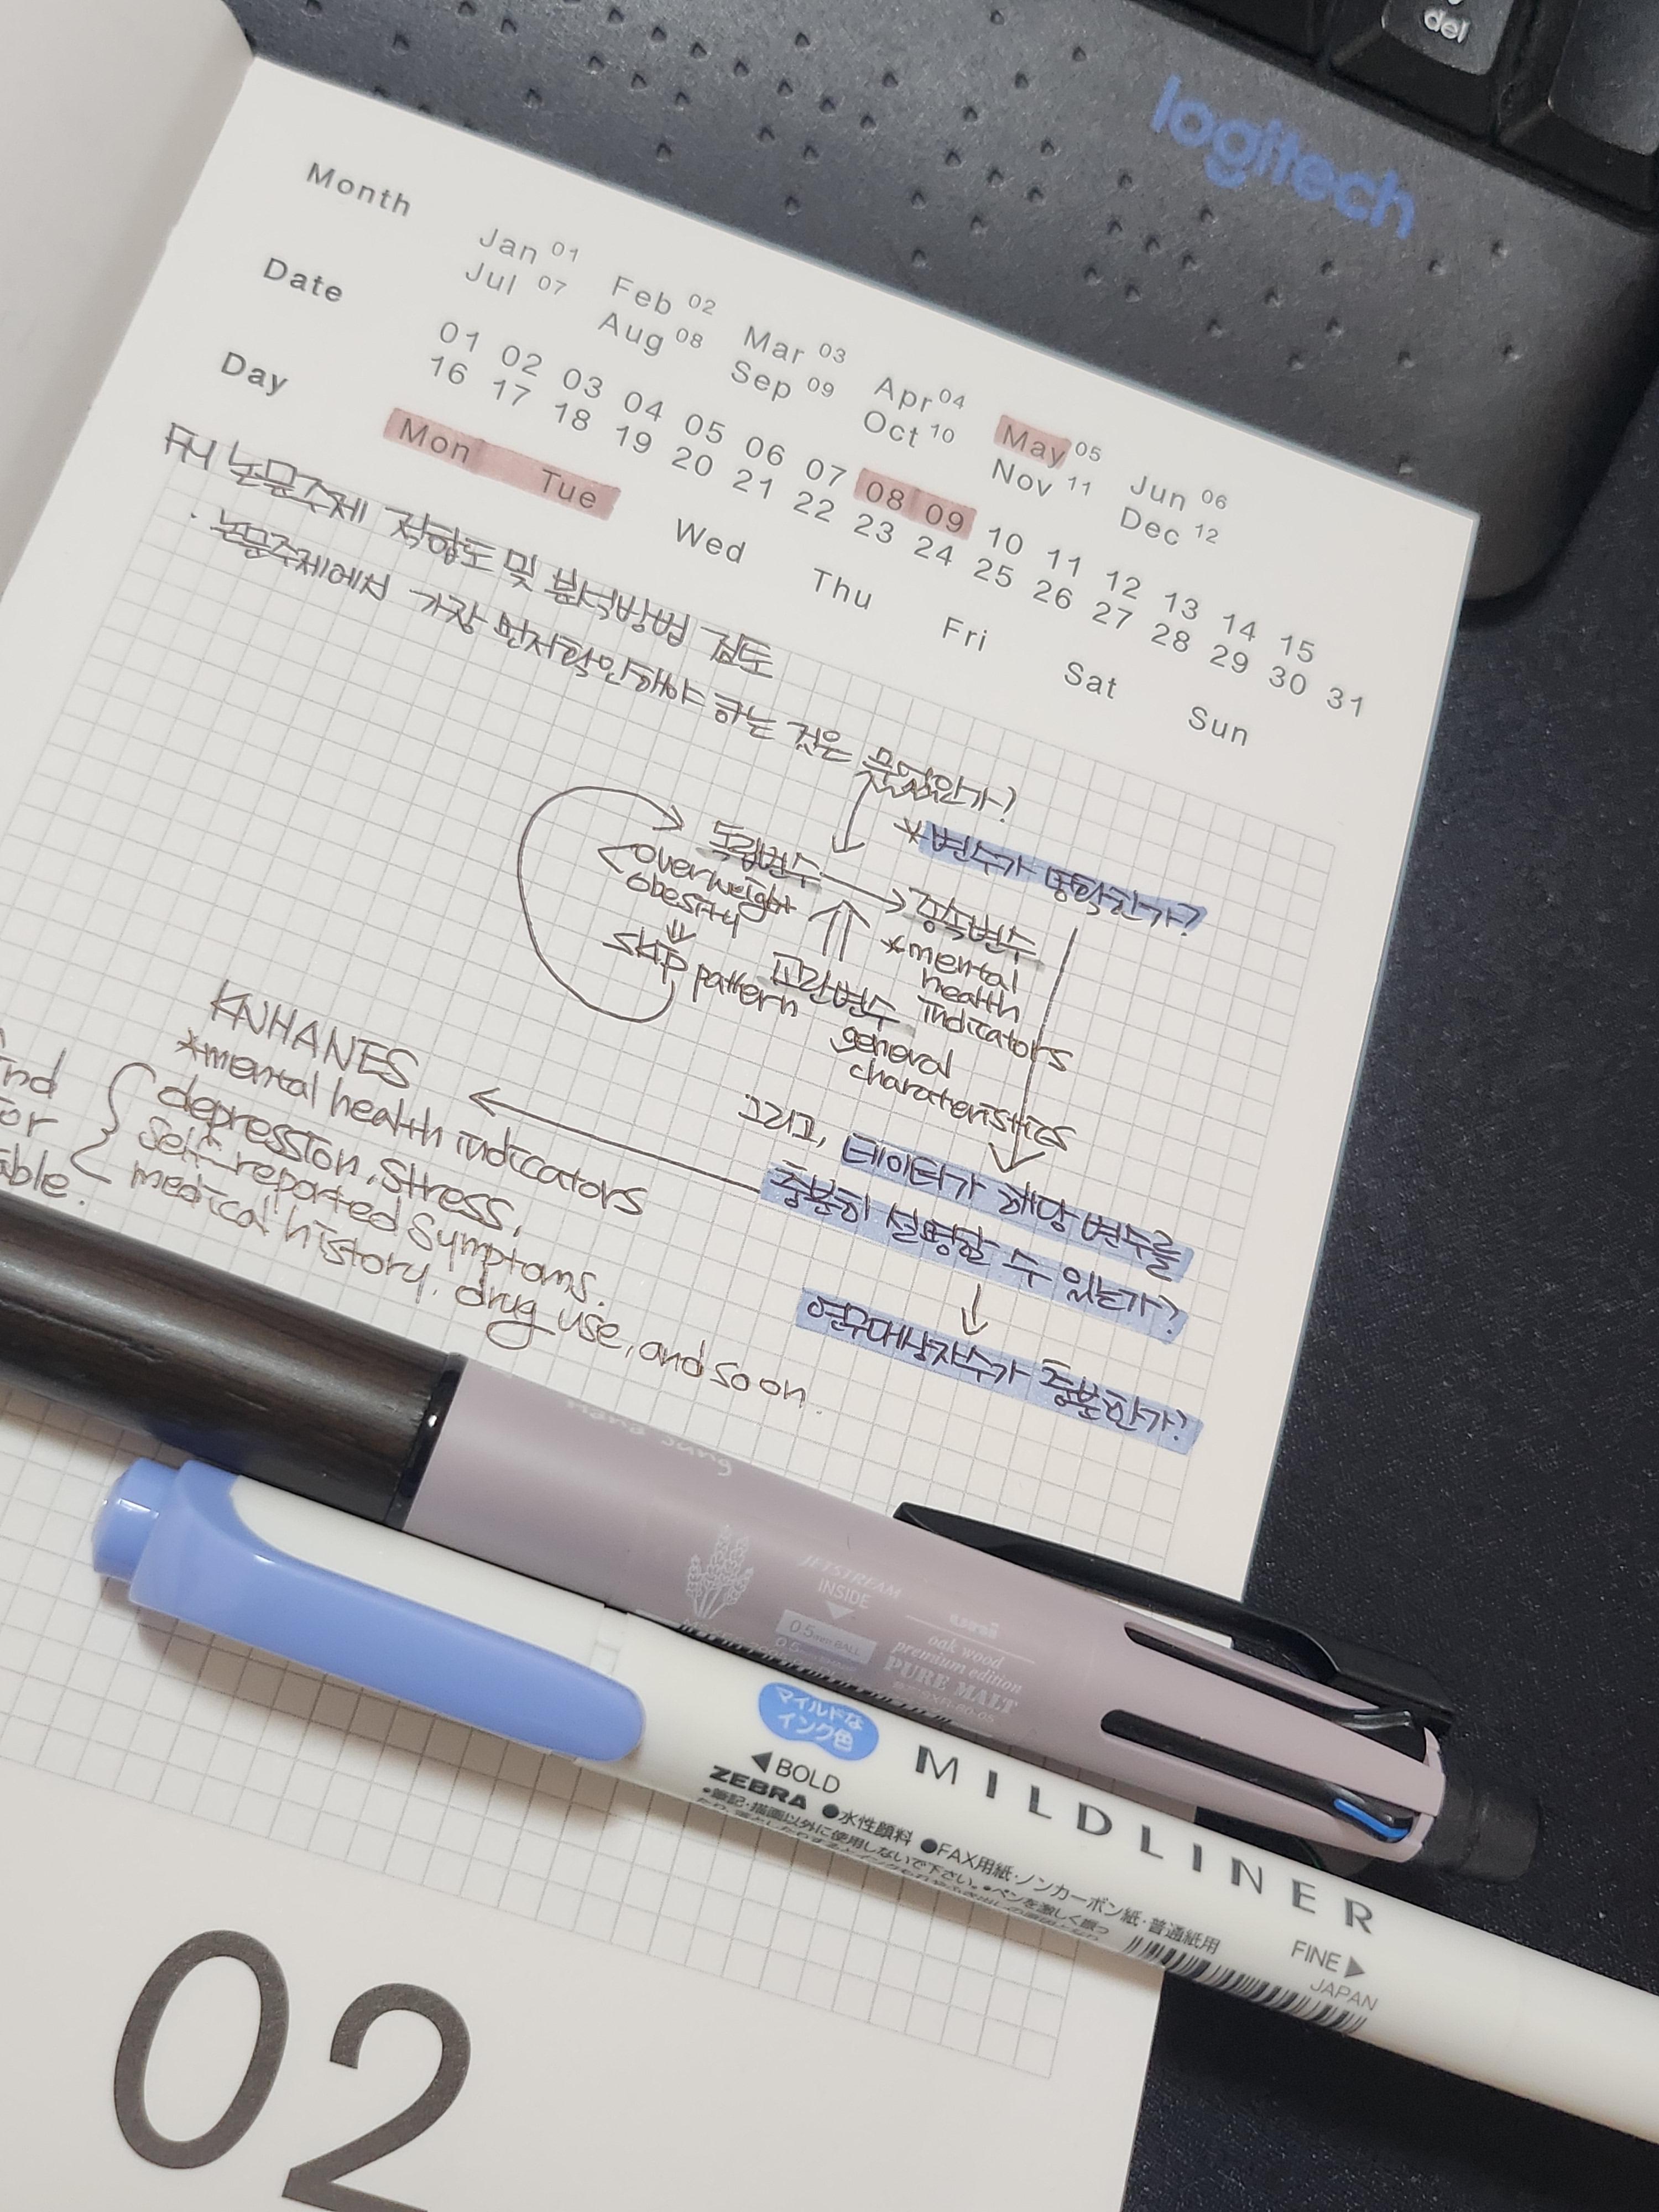 del
logitech
Month
Jan 01 Feb 02 Mar 03 Apr 04 May 05 Jun 06
Jul 07 Aug 08 Sep 09 Oct 10 Nov 11 Dec 12
Date
01 02 03 04 05 06 07 08 09 10 11 12 13 14 15
16 17 18 19 20 21 22 23 24 25 26 27 28 29 30 31
Day
Mon Tue Wed Thu Fri Sat Sun
논문주제 적합도 및 분석방법 검토
· 논문주제에서 가장 먼저 확인해야 하는 것은 무엇인가?
*변수가 명확한가?
독립변수
overweight
obesity
skip pattern
종속변수
*mental
health
indicators
교란변수
general
charateristics
그리고, 데이터가 해당 변수를
충분히 설명할 수 있는가?
연구대상자수가 충분한가?
KNHANES
*mental health indiccators
depression, stress,
self-reported symptoms.
medical history, drug use, and so on.
JETSTREAM
INSIDE
0.5mm BALL
uni
oak wood
premium edition
PURE MALT
マイルドな
インク色
MILDLINER
◀BOLD
ZEBRA ●水性顔料 ●FAX用紙・ノンカーボン紙・普通紙用
•筆記・描画以外に使用しないで下さい。•ペンを激しく振っ
FINE▶
JAPAN
02